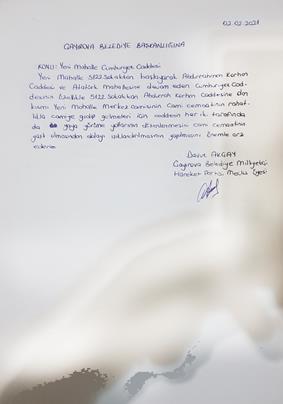 02.02.2021
ÇAYIROVA BELEDİYE BAŞKANLIĞINA
KONU: Yeni Mahalle Cumhuriyet Caddesi
Yeni Mahalle 5122. Sokaktan başlayarak Abdurrahman Korhan
Caddesi ve Atatürk Mahallesine devam eden Cumhuriyet Cad-
desinin Özellikle 5122. Sokaktan Korhan Caddesine
kısmı Yeni Mahalle Merkez Camisinin Cami cemaatinin rahat-
lıkla camiye gidip gelmeleri için caddenin her iki tarafında
da yaya yürüme yollarının düzenlenmesini cami cemaatinin
yaşlı olmasından dolayı yapılmasını önemle arz
ederim
Davut AKÇAY
Çayırova Belediye Milliyetçi
Hareket Partisi Meclis Üyesi